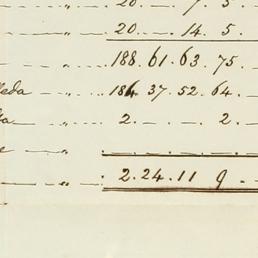 „ 20 . — 7 . 5 .
„ 20 . — 14 . 5 .
„ 188 . 61 . 63 . 75 .
leda „ 184 . 37 . 52 . 64 .
„ 2 . — . — 2 .
e „
„ 2 . 24 . 11 9 . —